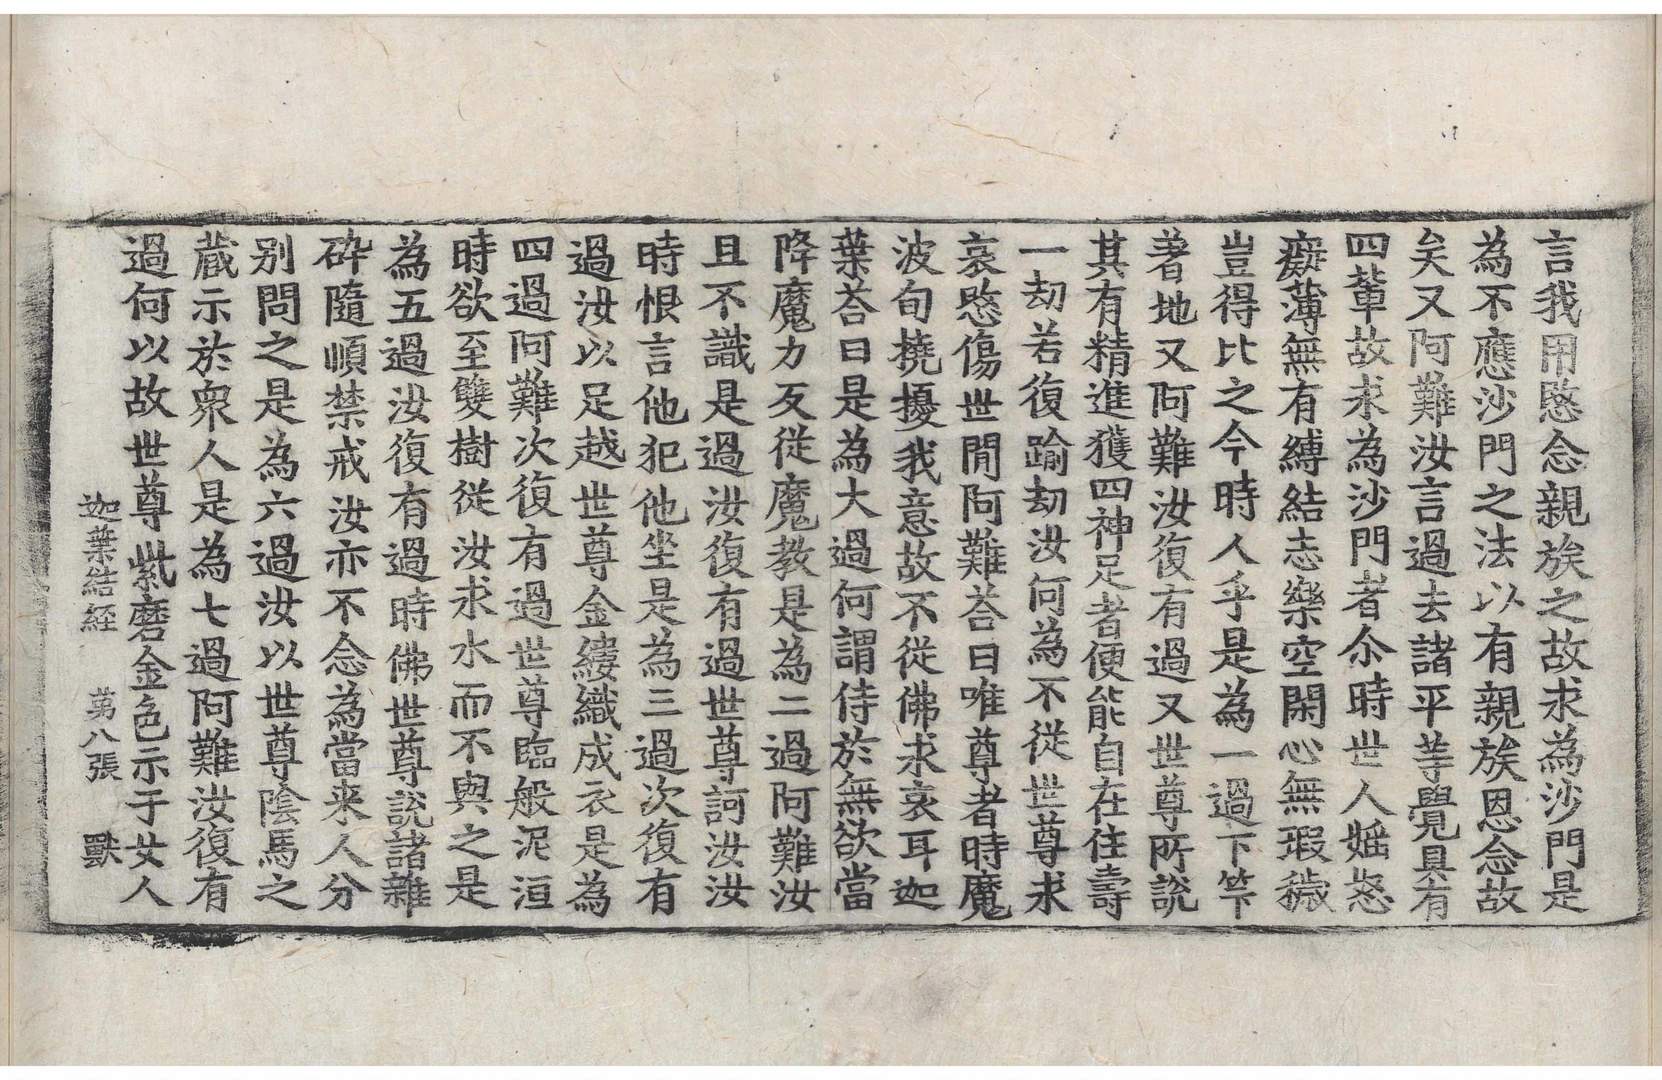 言我用愍念親族之故求為沙門是
為不應沙門之法以有親族恩念故
矣又阿難汝言過去諸平等覺具有
四輩故求為沙門者尒時世人婬怒
癡薄無有縛結志樂空閑心無瑕穢
豈得比之今時人乎是為一過下竿
著地又阿難汝復有過又世尊所說
其有精進獲四神足者便能自在住壽
一劫若復踰劫汝何為不從世尊求
哀愍傷世閒阿難荅曰唯尊者時魔
波旬撓擾我意故不從佛求哀耳迦
葉荅曰是為大過何謂侍於無欲當
降魔力反從魔教是為二過阿難汝
且不識是過汝復有過世尊訶汝汝
時恨言他犯他坐是為三過次復有
過汝以足越世尊金縷織成衣是為
四過阿難次復有過世尊臨般泥洹
時欲至雙樹從汝求水而不與之是
為五過汝復有過時佛世尊說諸雜
碎隨順禁戒汝亦不念為當来人分
别問之是為六過汝以世尊陰馬之
藏示於衆人是為七過阿難汝復有
過何以故世尊紫磨金色示于女人
迦葉結經 第八張 獸